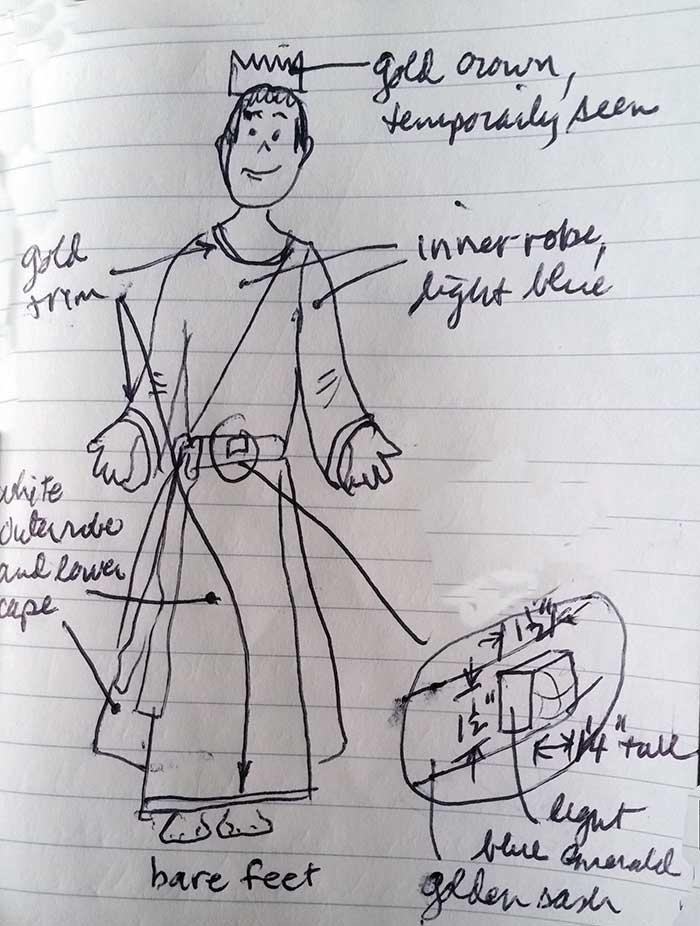 gold crown,
temporaily seen
gold
trim
inner robe,
light blue
white
outer robe
and lower
cape
1 1/2"
1 1/2"
1/4" tall
light
blue emerald
golden sash
bare feet